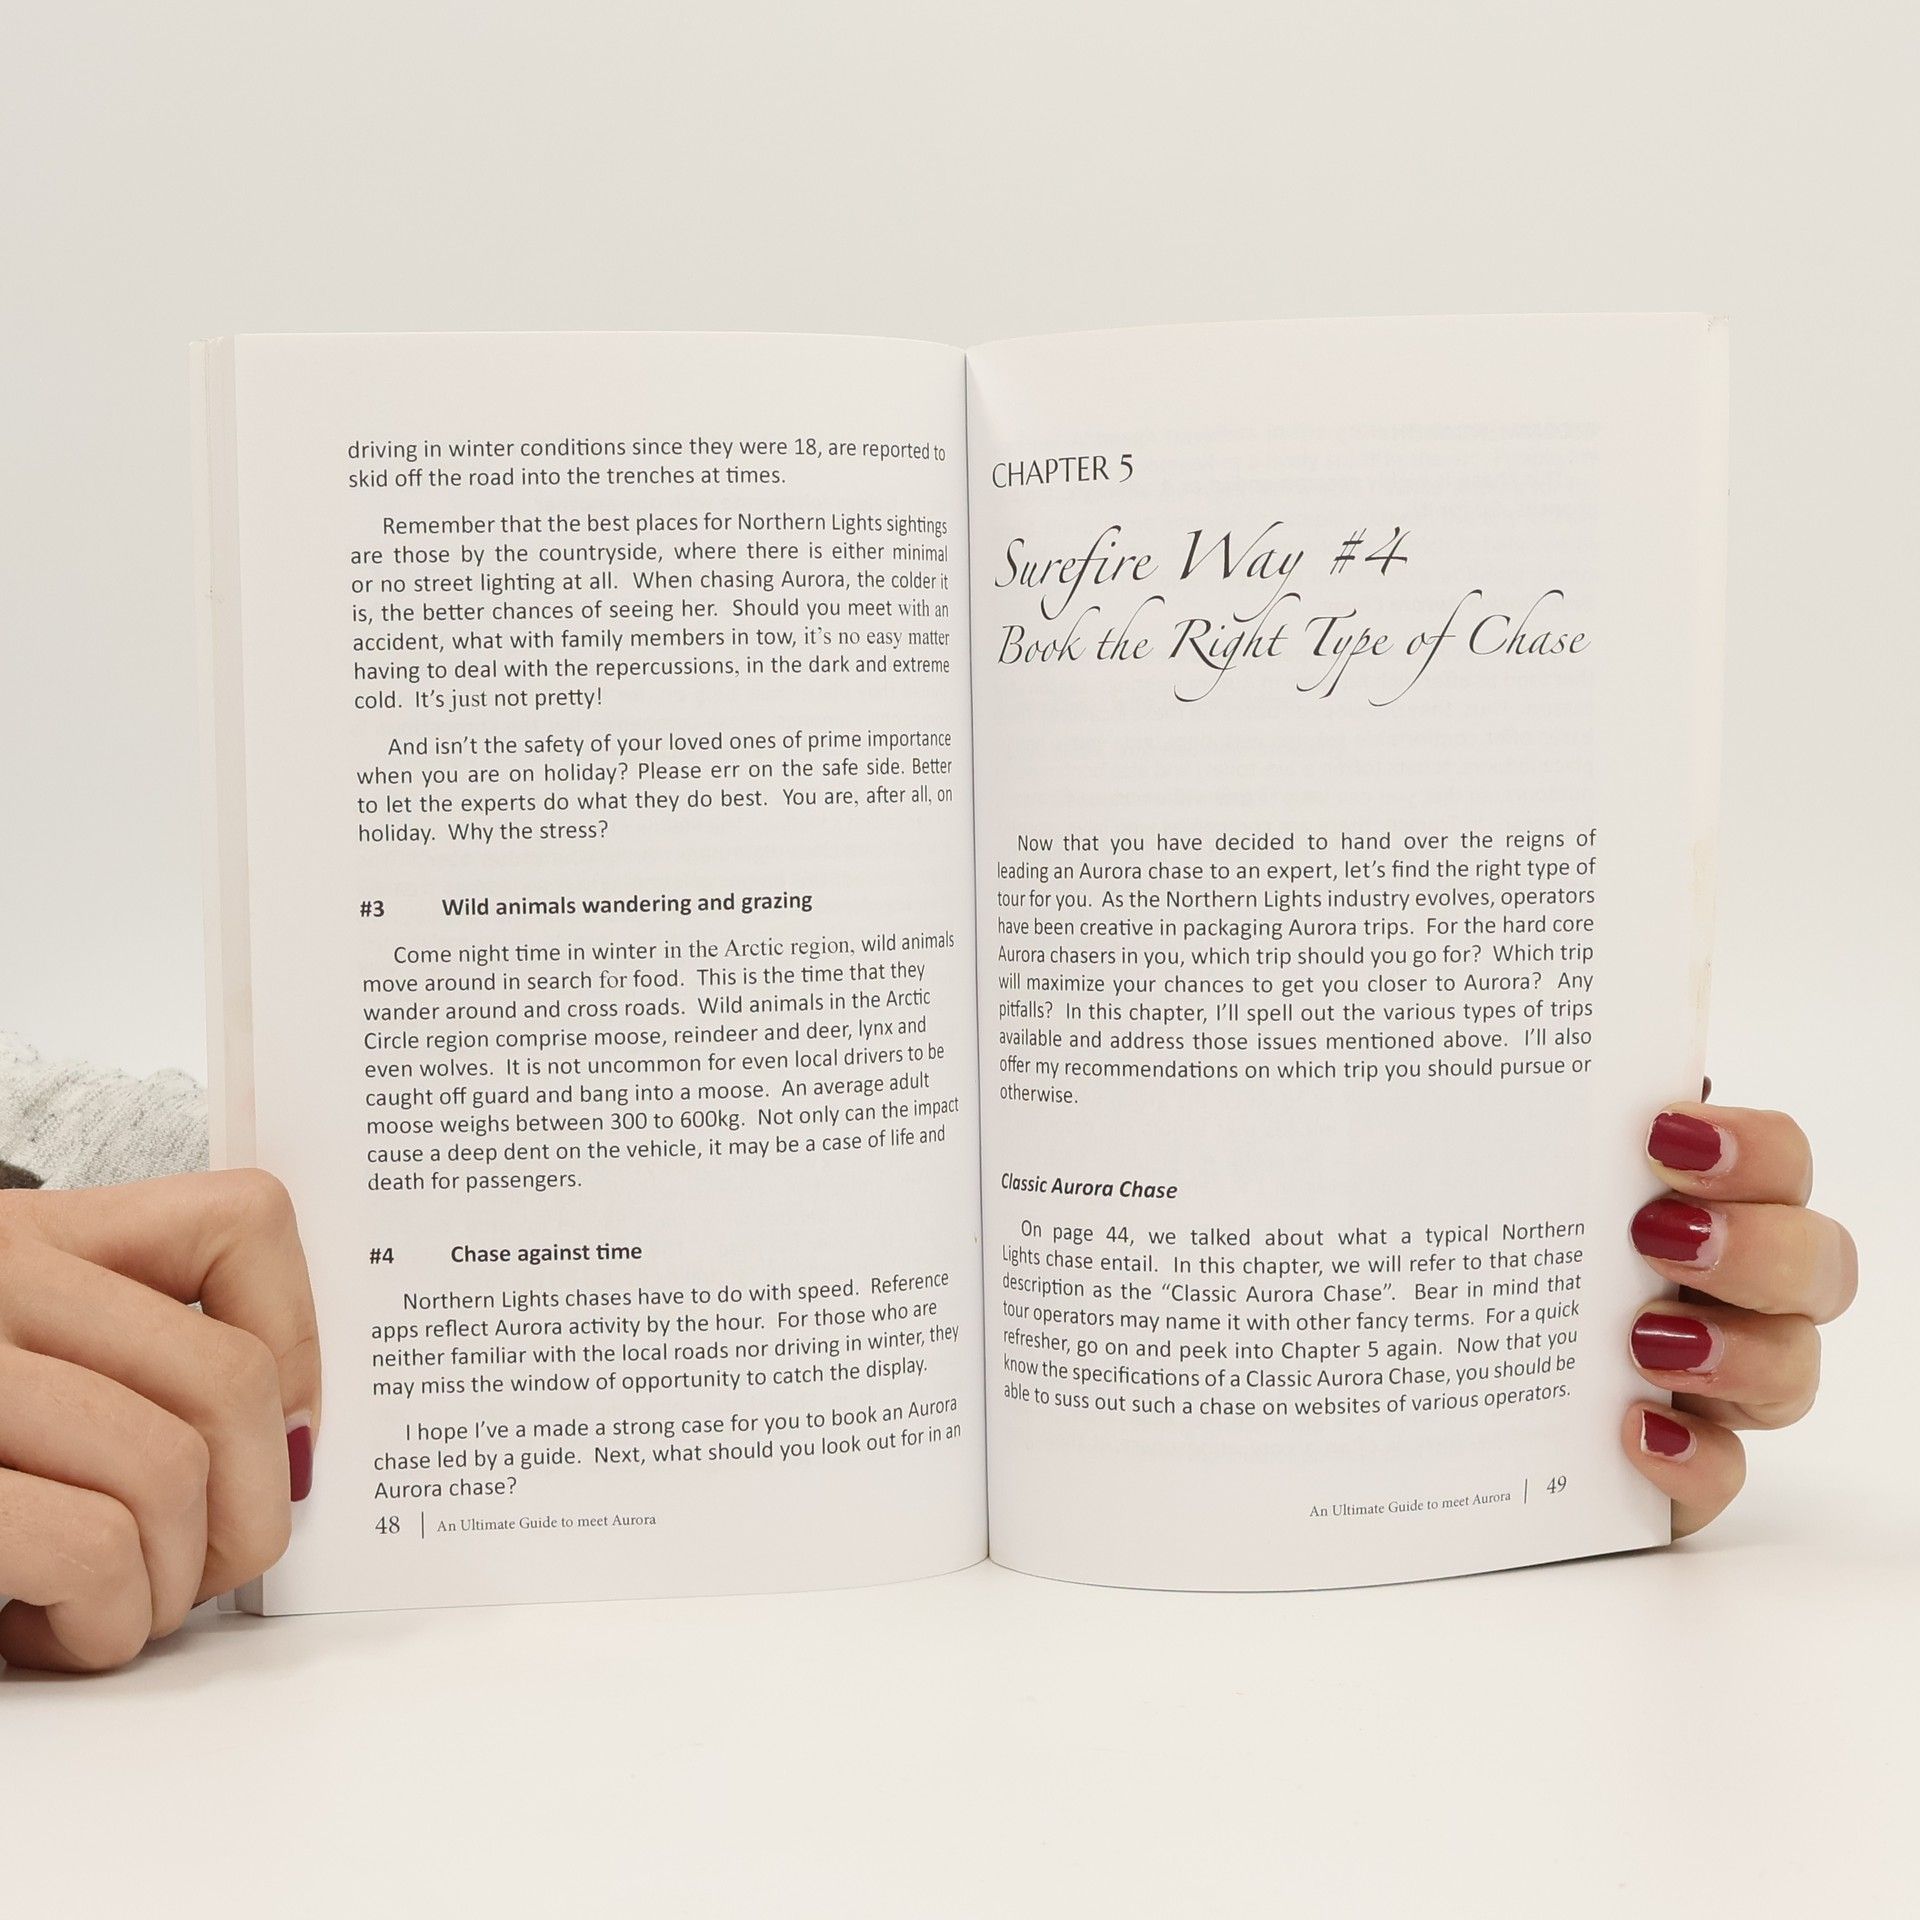 driving in winter conditions since they were 18, are reported to
skid off the road into the trenches at times.
Remember that the best places for Northern Lights sightings
are those by the countryside, where there is either minimal
or no street lighting at all. When chasing Aurora, the colder it
is, the better chances of seeing her. Should you meet with an
accident, what with family members in tow, it's no easy matter
having to deal with the repercussions, in the dark and extreme
cold. It's just not pretty!
And isn't the safety of your loved ones of prime importance
when you are on holiday? Please err on the safe side. Better
to let the experts do what they do best. You are, after all, on
holiday. Why the stress?
#3 Wild animals wandering and grazing
Come night time in winter in the Arctic region, wild animals
move around in search for food. This is the time that they
wander around and cross roads. Wild animals in the Arctic
Circle region comprise moose, reindeer and deer, lynx and
even wolves. It is not uncommon for even local drivers to be
caught off guard and bang into a moose. An average adult
moose weighs between 300 to 600kg. Not only can the impact
cause a deep dent on the vehicle, it may be a case of life and
death for passengers.
#4 Chase against time
Northern Lights chases have to do with speed. Reference
apps reflect Aurora activity by the hour. For those who are
neither familiar with the local roads nor driving in winter, they
may miss the window of opportunity to catch the display.
I hope I've a made a strong case for you to book an Aurora
chase led by a guide. Next, what should you look out for in an
Aurora chase?
48 | An Ultimate Guide to meet Aurora
CHAPTER 5
Surefire Way #4
Book the Right Type of Chase
Now that you have decided to hand over the reigns of
leading an Aurora chase to an expert, let's find the right type of
tour for you. As the Northern Lights industry evolves, operators
have been creative in packaging Aurora trips. For the hard core
Aurora chasers in you, which trip should you go for? Which trip
will maximize your chances to get you closer to Aurora? Any
pitfalls? In this chapter, I'll spell out the various types of trips
available and address those issues mentioned above. I'll also
offer my recommendations on which trip you should pursue or
otherwise.
Classic Aurora Chase
On page 44, we talked about what a typical Northern
Lights chase entail. In this chapter, we will refer to that chase
description as the "Classic Aurora Chase". Bear in mind that
tour operators may name it with other fancy terms. For a quick
refresher, go on and peek into Chapter 5 again. Now that you
know the specifications of a Classic Aurora Chase, you should be
able to suss out such a chase on websites of various operators.
An Ultimate Guide to meet Aurora | 49